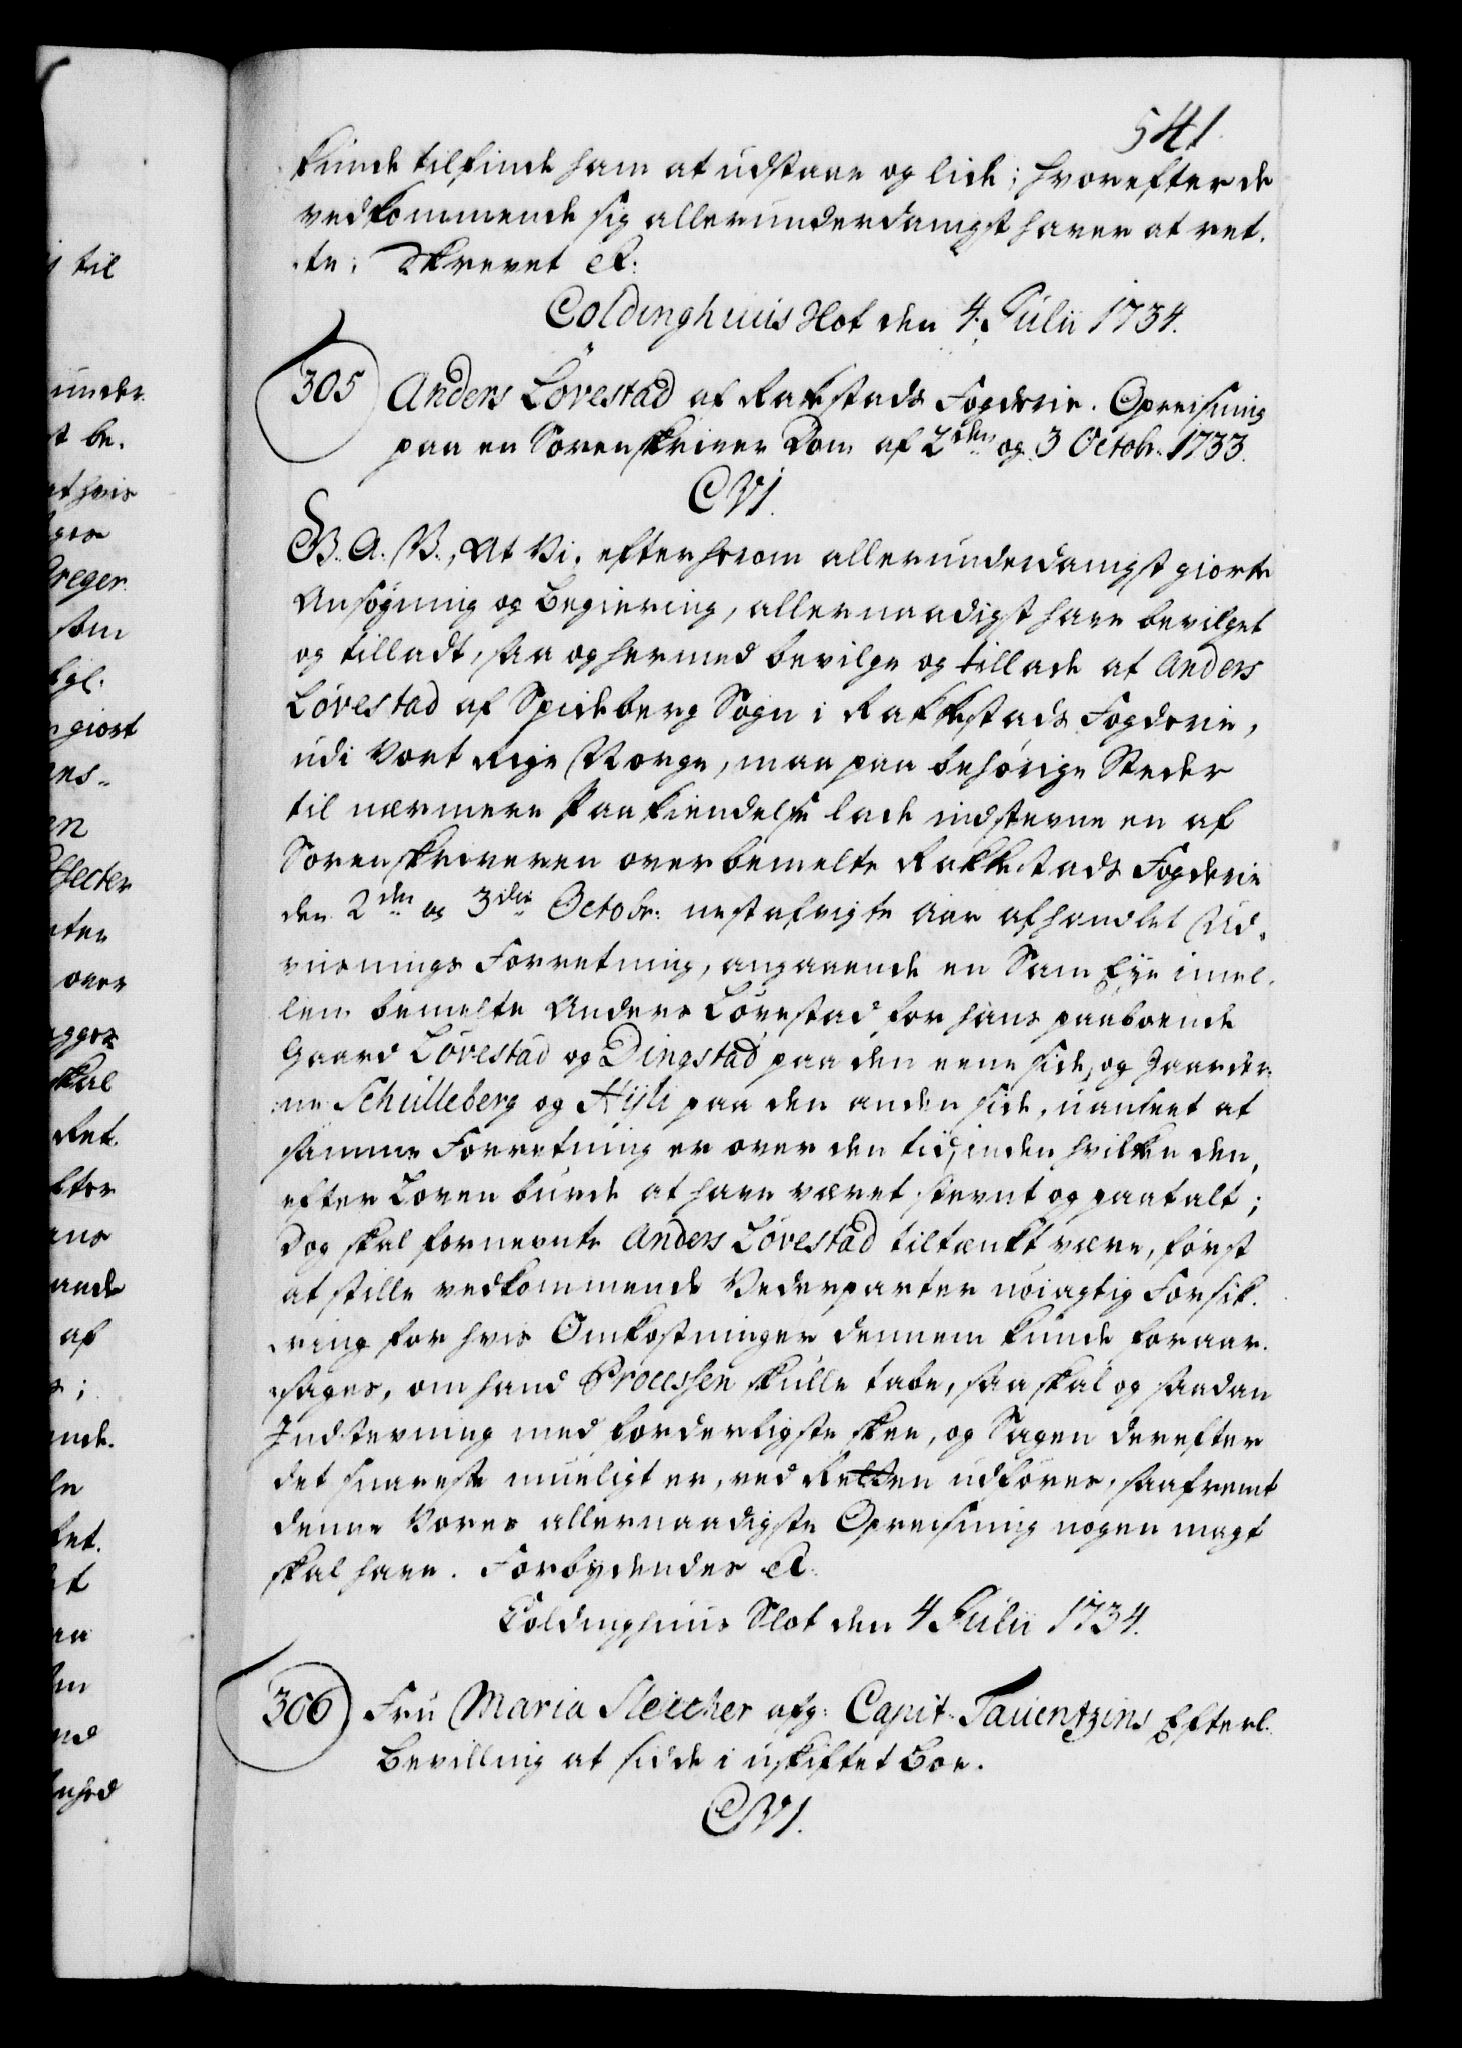 541.
kunde tilfinde ham at udstaae og lide; hvorefter de
vedkommende sig allerunderdanigst haver at ret-
te. Skrevet etc.
Coldinghuus Slot den 4. Julii 1734.
305 Anders Lövestad af Rakkestads Fogderie. Opreisning
paa en Sorenskriver Dom af 2den og 3 Octobr. 1733.
CVI.
G. A. V., At Vi, efter herom allerunderdanigst giorte
Ansøgning og Begiering, allernaadigst have bevilget
og tilladt, saa og hermed bevilge og tillade at Anders
Lövestad af Spideberg Sogn i Rakkestads Fogderie,
udi Vort Rige Norge, maa paa behörige Steder
til nærmere Paakiendelse lade indstevne en af
Sorenskriveren over bemelte Rakkestads Fogderie
den 2den og 3die Octobr. nestafvigte Aar afhandlet Ud-
viisnings Forretning, angaaende en Sam Eye imel-
lem bemelte Anders Lövestad for hans paaboende
Gaard Lövestad og Dingstad paa den eene side, og Gaarder-
ne Schulleberg og Hylli paa den anden side, uanseet at
samme Forretning er over den tid, inden hvilken den,
efter Loven burde at have været stevnt og paatalt;
Dog skal fornevnte Anders Lövestad tiltænkt være, først
at stille vedkommende Vederparter nöiagtig Forsik-
ring for hvis Omkostninger dennem kunde foraar-
sages, om hand Processen skulle tabe, saa skal og saadan
Indstevning med forderligste skee, og Sagen derefter
det snareste mueligt er, ved Retten udføres, saafremt
denne Vores allernaadigste Opreisning nogen magt
skal have. Forbydendes etc.
Coldinghuus Slot den 4 Julii 1734.
306 Fru Maria Sleicher afg: Capit. Tauentzins Efterl.
Bevilling at sidde i uskiftet Boe.
CVI.
til
under
be.
hvis
som
giort
over
skal
Ret.
af